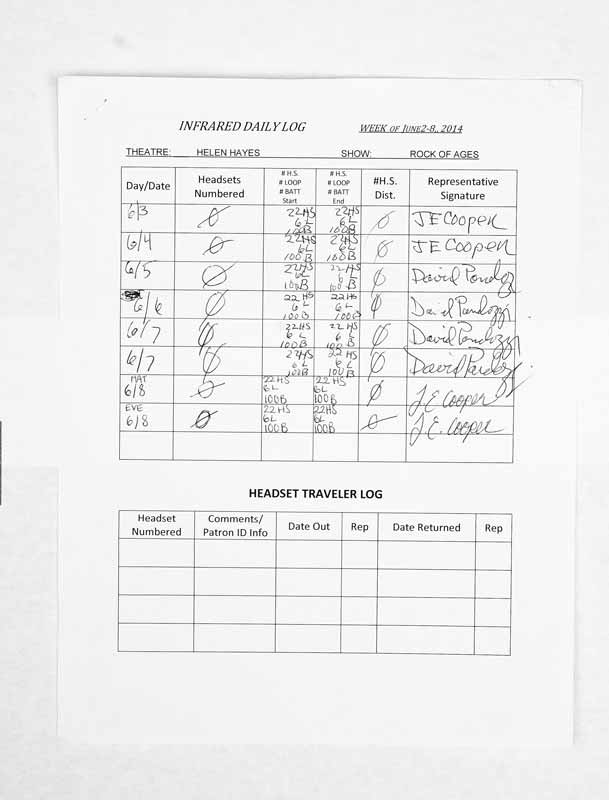 INFRARED DAILY LOG WEEK OF JUNE2-8, 2014
THEATRE: HELEN HAYES SHOW: ROCK OF AGES
Day/Date Headsets Numbered # H.S. # LOOP # BATT Start # H.S. # LOOP # BATT End #H.S. Dist. Representative Signature
6/3 Ø 22HS 6L 100B 22HS 6L 100B Ø JE Cooper
6/4 Ø 22HS 6L 100B 22HS 6L 100B Ø JE Cooper
6/5 Ø 22HS 6L 100B 22HS 6L 100B Ø David Pandozzi
6/6 Ø 22HS 6L 100B 22HS 6L 100B Ø David Pandozzi
6/7 Ø 22HS 6L 100B 22HS 6L 100B Ø David Pandozzi
6/7 Ø 22HS 6L 100B 22HS 6L 100B Ø David Pandozzi
MAT 6/8 Ø 22HS 6L 100B 22HS 6L 100B Ø J.E Cooper
EVE 6/8 Ø 22HS 6L 100B 22HS 6L 100B Ø J.E. Cooper
HEADSET TRAVELER LOG
Headset Numbered Comments/ Patron ID Info Date Out Rep Date Returned Rep